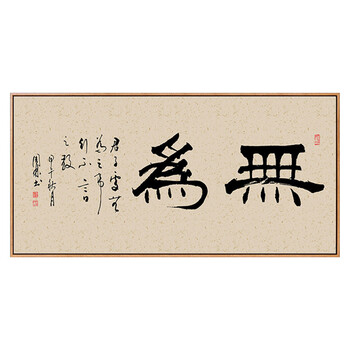 無為
君子處無
為之事
行不言
之教
甲午秋月